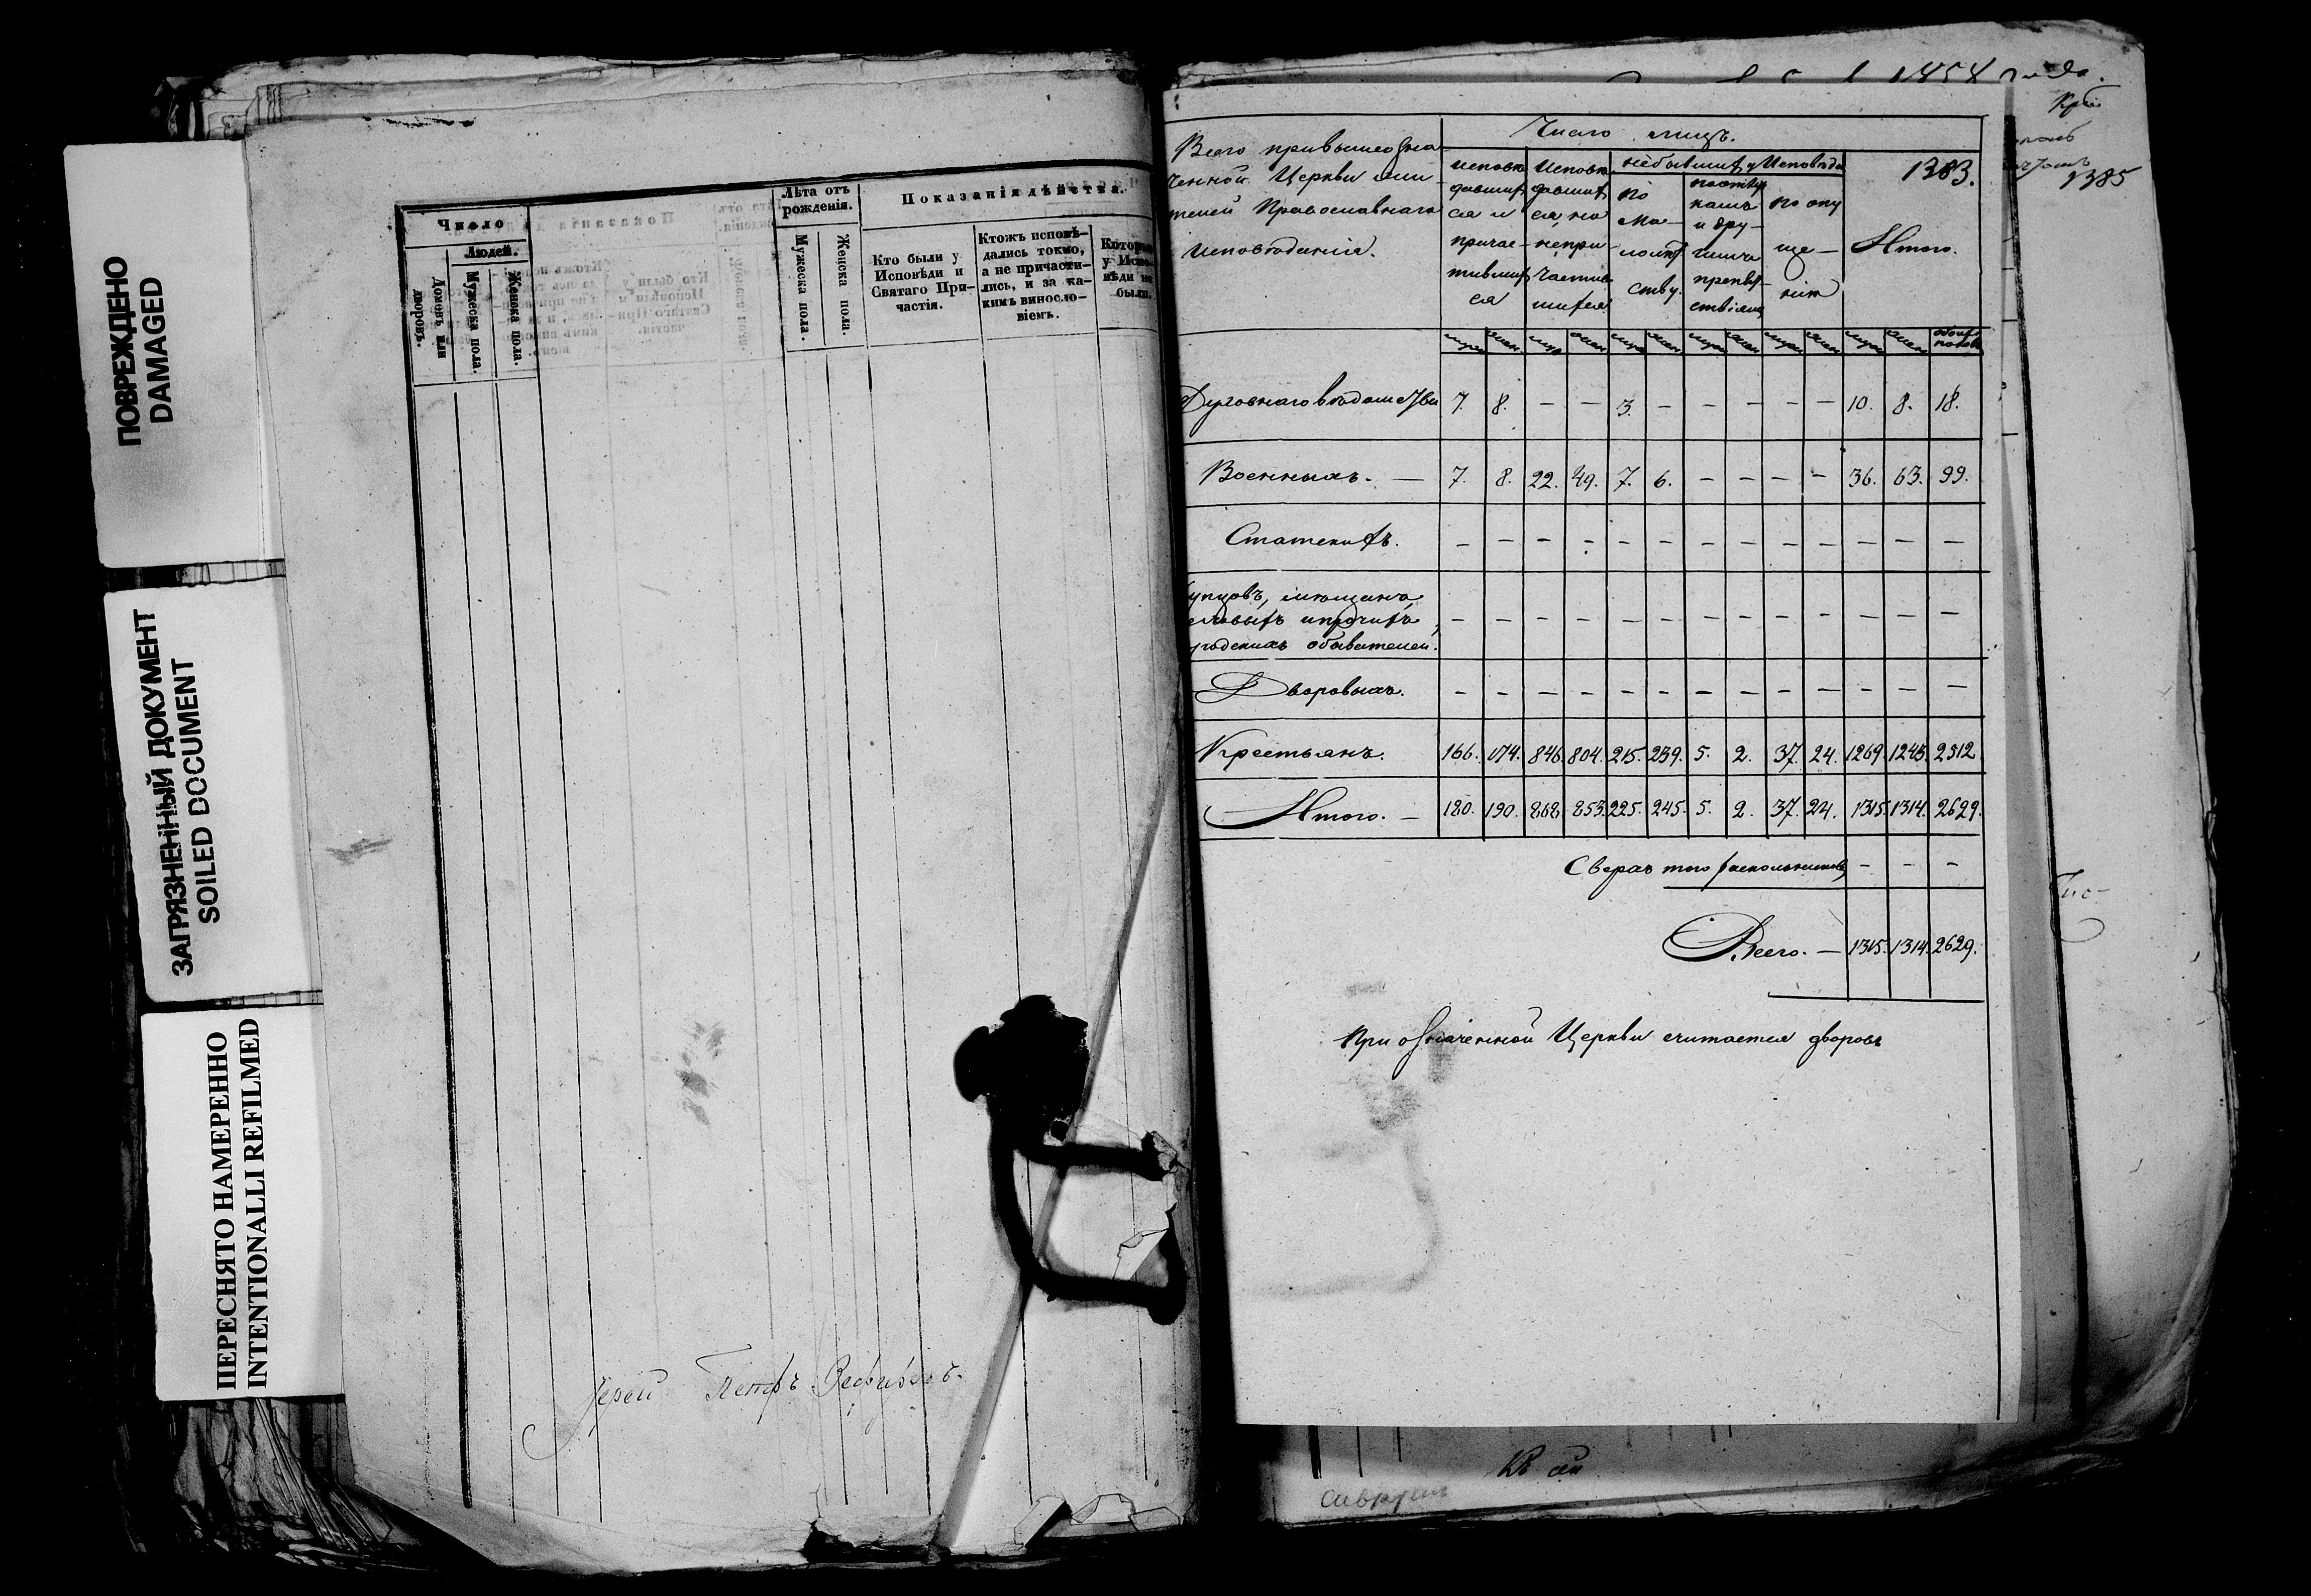 ПОВРЕЖДЕНО
DAMAGED
ЗАГРЯЗНЕННЫЙ ДОКУМЕНТ
SOILED DOCUMENT
ПЕРЕСНЯТО НАМЕРЕННО
INTENTIONALLI REFILMED
Число
Людей.
Домовъ или дворовъ.
Мужеска пола.
Женска пола.
Лѣта отъ рожденія.
Мужеска пола.
Женска пола.
Показанія дѣйства.
Кто были у
Исповѣди и
Святаго При-
частія.
Ктожъ исповѣ-
дались токмо,
а не причасти-
лись, и за ка-
кимъ виносло-
віемъ.
Которые
у Испо-
вѣди не
были.
Іерей Петръ
1858 года.
1385
1383.
Всего при вышеозна-
ченной Церкви жи
телей Православнаго
исповѣданія.
Число лицъ.
исповѣ
давших
ся и
причас-
тивших
ся
Исповѣ
давших
ся, но
непри-
частив
шихся
небывших у Исповѣди
по
ма-
лолѣт
ству.
по отлу
камъ
и дру-
гимъ
препят
ствіямъ
по опу
ще-
нію
Итого.
муж жен. муж жен муж жен муж жен муж жен муж жен обоих половъ
Духовнаго вѣдомства 7. 8. — — 3. — — — — — 10. 8. 18.
Военныхъ. — 7. 8. 22. 49. 7. 6. — — — — 36. 63. 99.
Статскихъ. — — — — — — — — — — — — —
упцовъ, мѣщанъ,
еховыхъ и прочихъ — — — — — — — — — — — — —
градскихъ обывателей.
Дворовыхъ. — — — — — — — — — — — — —
Крестьянъ. 166. 174. 846. 804. 215. 239. 5. 2. 37. 24. 1269. 1243. 2512
Итого. — 180. 190. 868 853. 225. 245. 5. 2. 37. 24. 1315. 1314. 2629.
Сверхъ того раскольниковъ — — —
Всего. — 1315. 1314. 2629.
При означенной Церкви считается дворовъ